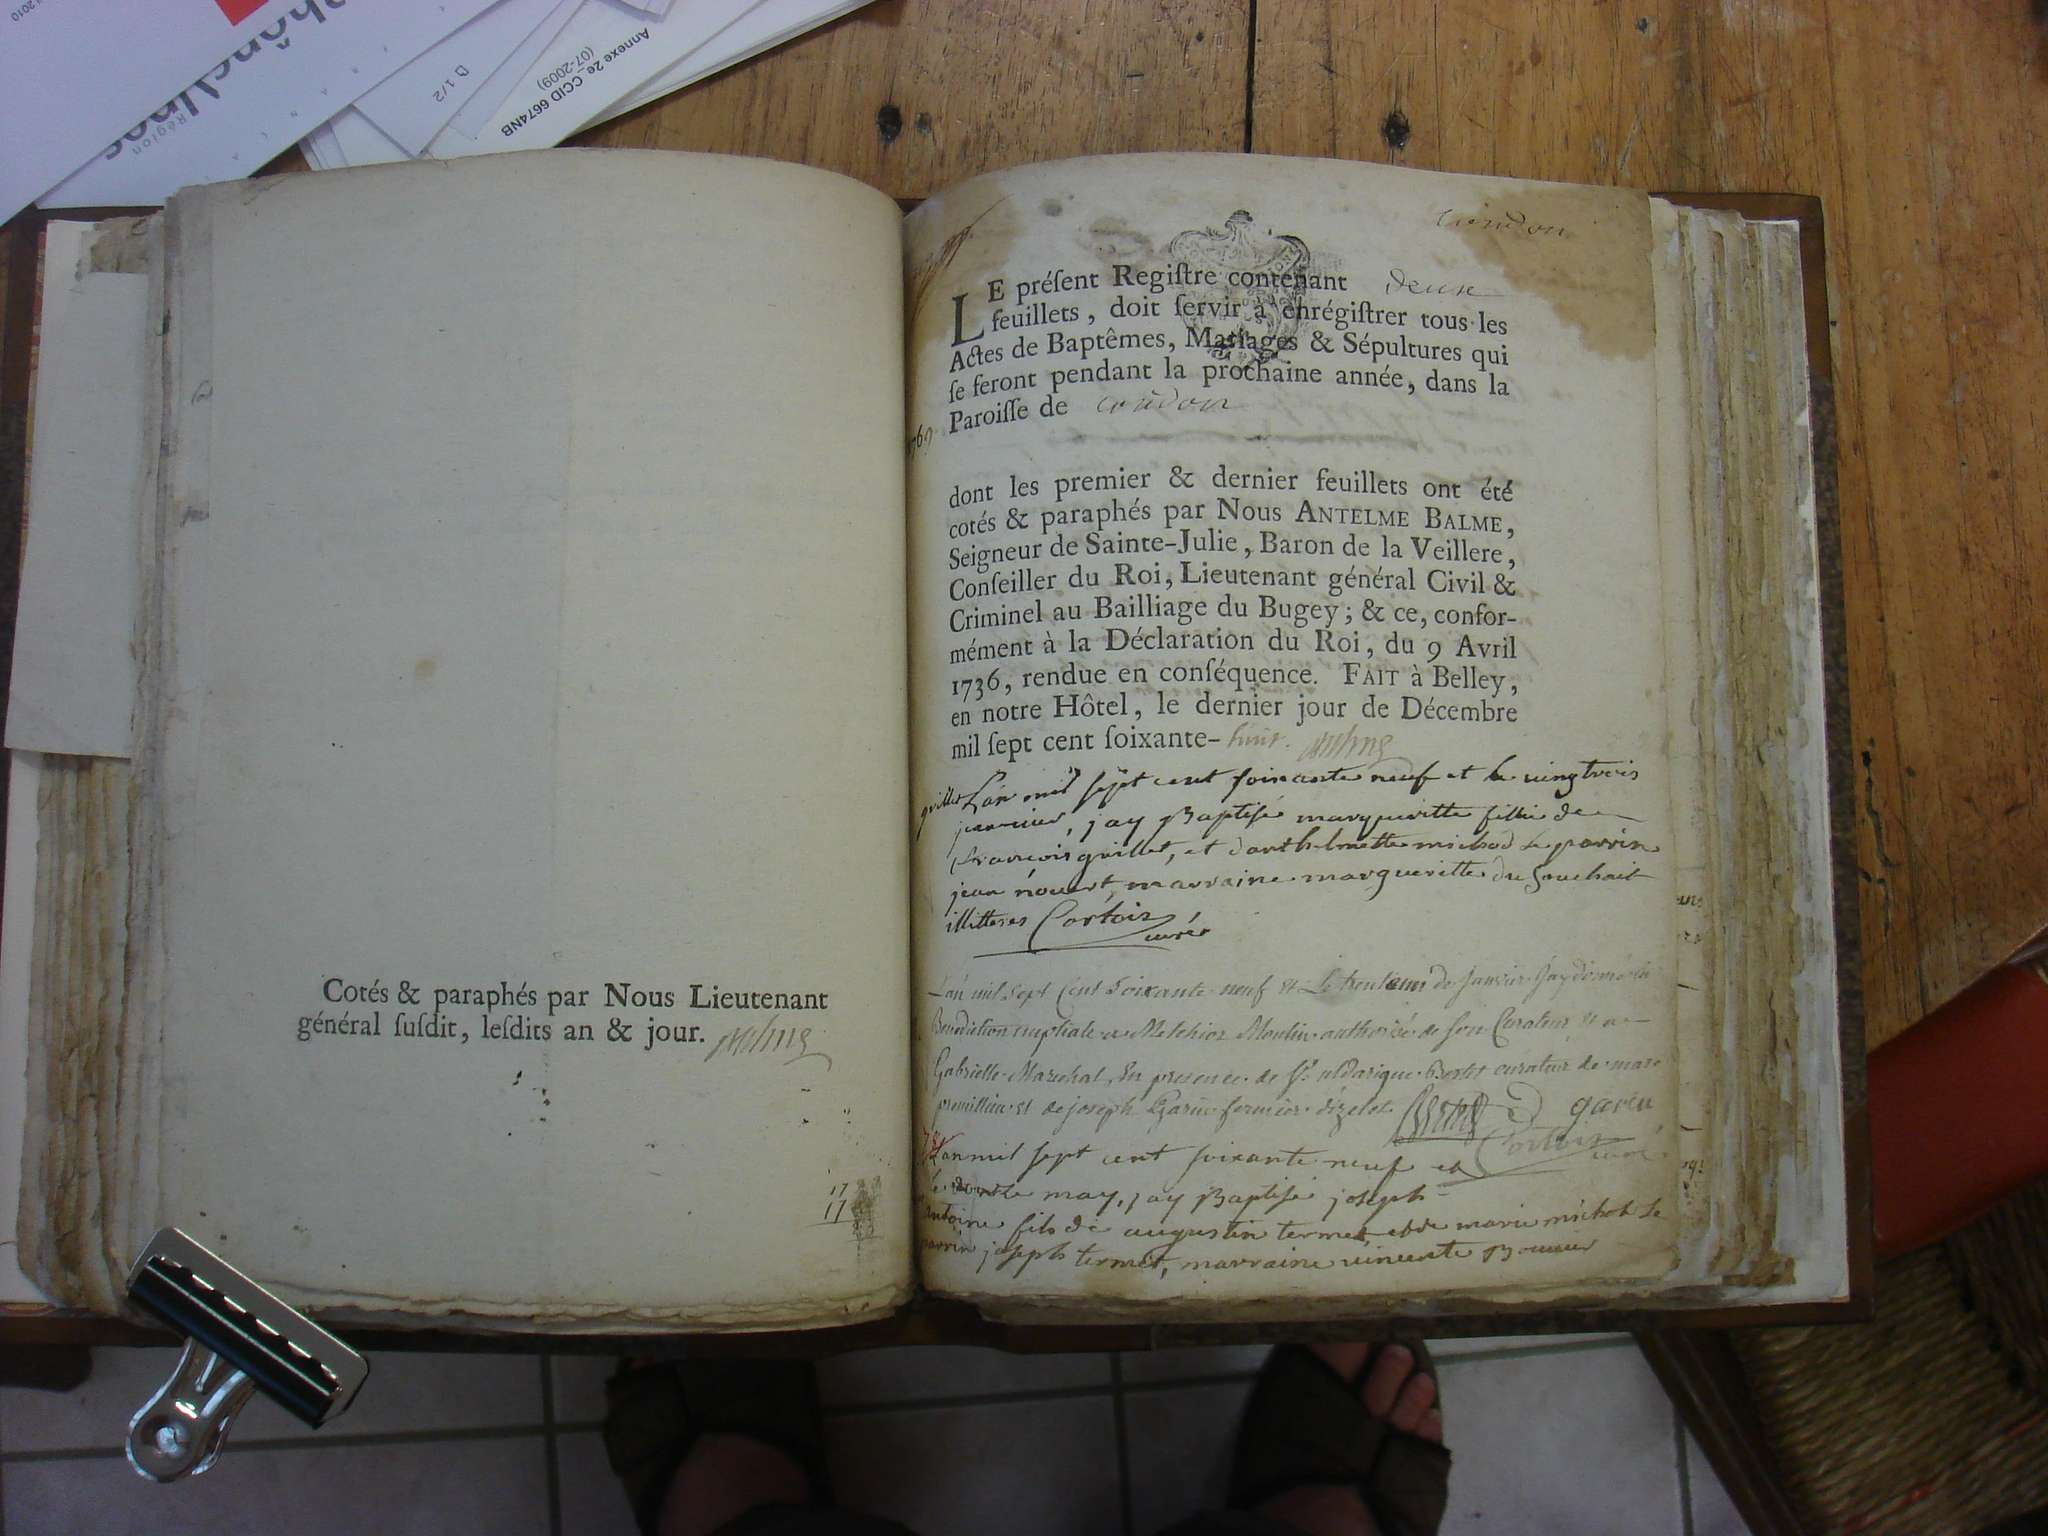 Rhônalpes
Région
2010
1/2
Annexe 2e_CCID 6674NB
(07-2009)
Cotés & paraphés par Nous Lieutenant
général ſuſdit, leſdits an & jour.
17
17
Coudon
LE préſent Regiſtre contenant deux
feuillets, doit ſervir à enrégiſtrer tous les
Actes de Baptêmes, Mariages & Sépultures qui
ſe feront pendant la prochaine année, dans la
Paroiſſe de Coudon
1769
dont les premier & dernier feuillets ont été
cotés & paraphés par Nous ANTELME BALME,
Seigneur de Sainte-Julie, Baron de la Veillere,
Conſeiller du Roi, Lieutenant général Civil &
Criminel au Bailliage du Bugey; & ce, confor-
mément à la Déclaration du Roi, du 9 Avril
1736, rendue en conſéquence. FAIT à Belley,
en notre Hôtel, le dernier jour de Décembre
mil ſept cent ſoixante-huit.
grillet L'an mil sept cent soixante neuf et le vingt trois
janvier, j'ay Baptisé margueritte fillie de
francois grillet, et d'anthelmette michod le parrin
jean nouet, marraine marguerite du Souchait
illitteres Cortois curé
L'an mil sept Cent Soixante neuf et Le trente un de Janvier J'ay donné la
Benediction nuptiale a Melchior Moulin authorisé de son Curateur et a
Gabrielle Marechal, En presence de Sr. uldarique Bertet curateur de marc
premillieu et de joseph Garin fermier d'izelet Bertet garin
Cortois curé
L'an mil sept cent soixante neuf et
le may, j'ay Baptisé joseph
antoine fils de augustin termet et de marie michod le
parrin joseph termet, marraine vincente